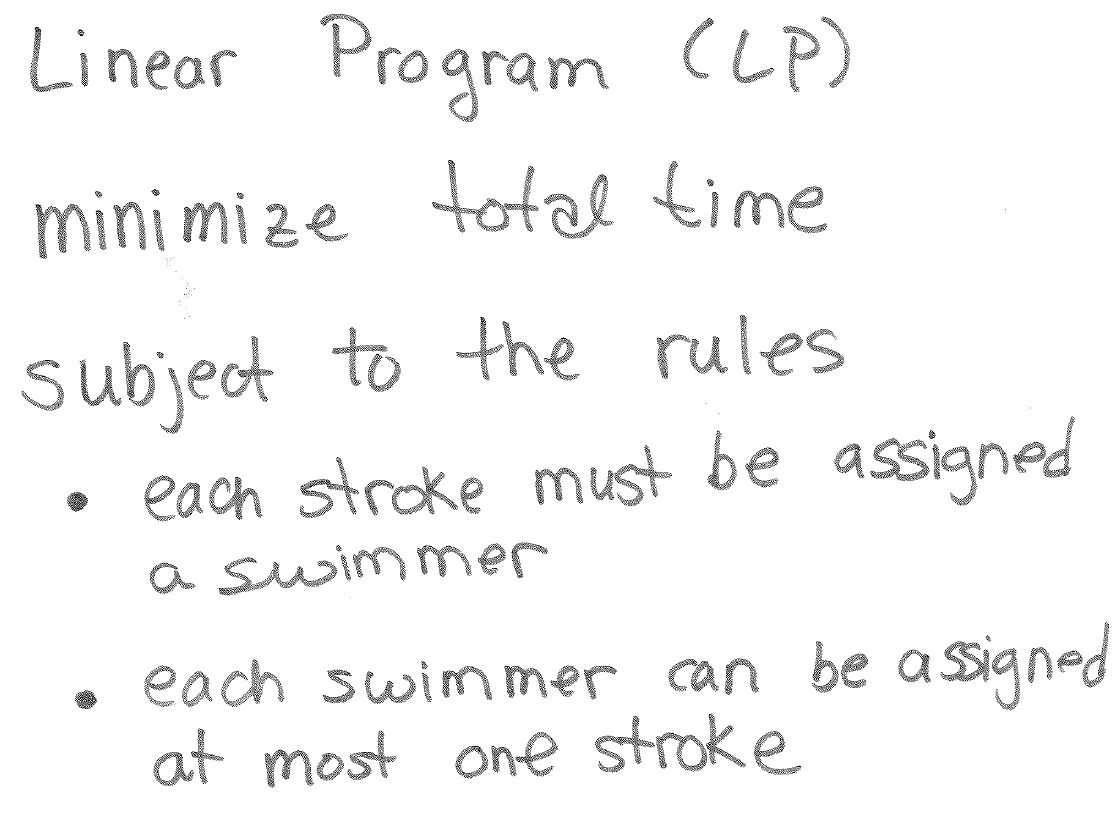 Linear Program (LP)
minimize total time
subject to the rules
• each stroke must be assigned
a swimmer
• each swimmer can be assigned
at most one stroke